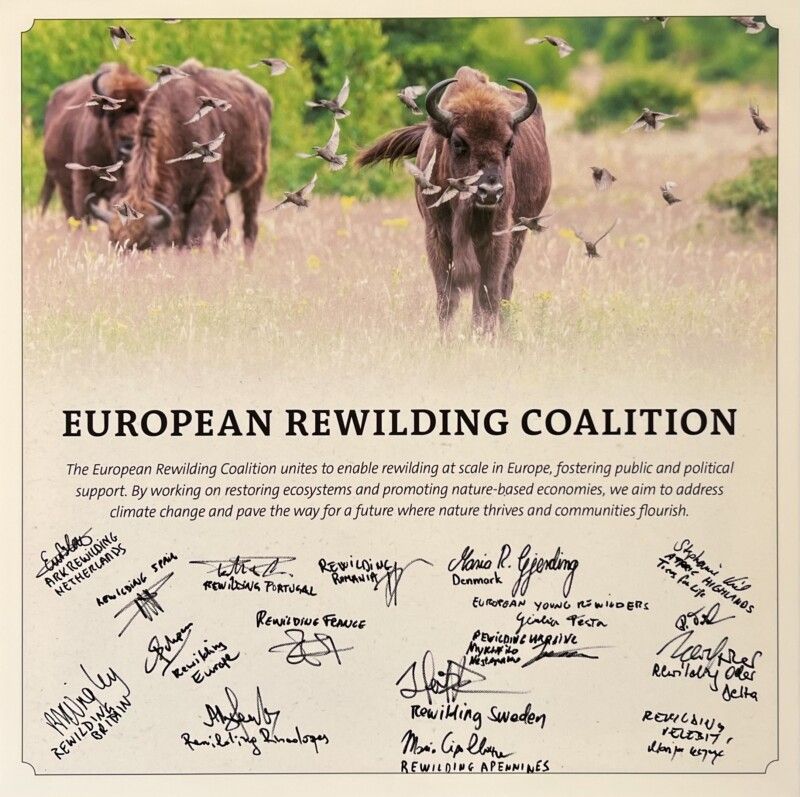 EUROPEAN REWILDING COALITION
The European Rewilding Coalition unites to enable rewilding at scale in Europe, fostering public and political
support. By working on restoring ecosystems and promoting nature-based economies, we aim to address
climate change and pave the way for a future where nature thrives and communities flourish.
ARK REWILDING
NETHERLANDS
REWILDING SPAIN
REWILDING PORTUGAL
REWILDING
ROMANIA
Maria R. Gjerding
Denmark
HIGHLANDS
Trees for Life
EUROPEAN YOUNG REWILDERS
Giulia Testa
REWILDING FRANCE
REWILDING UKRAINE
Rewilding
Europe
Rewilding Oder
Delta
REWILDING
BRITAIN
Rewilding Sweden
Rewilding
REWILDING
VELEBIT
REWILDING APENNINES